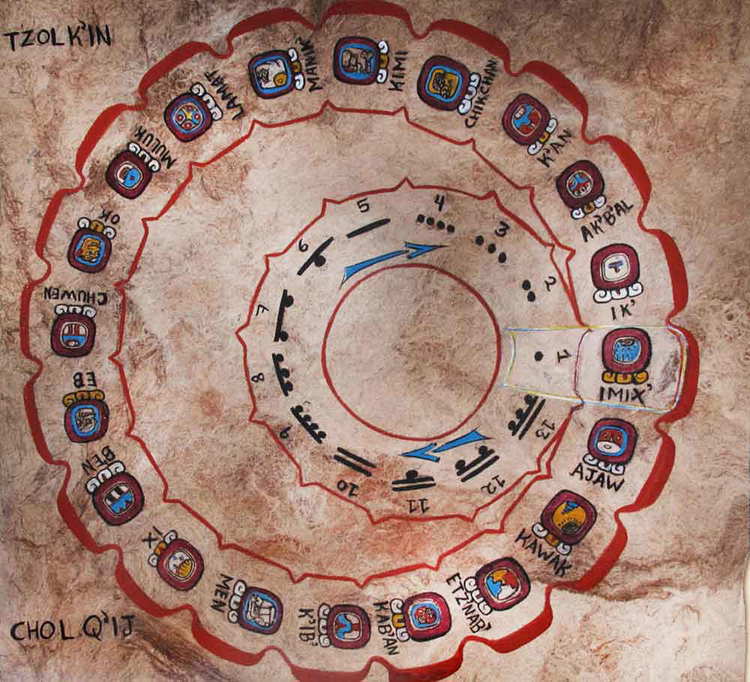 TZOLK'IN
IMIX'
IK'
AK'B'AL
K'AN
CHIKCHAN
KIMI
MANIK'
LAMAT
MULUK
OK
CHUWEN
EB
B'EN
IX
MEN
K'IB'
KAB'AN
ETZ'NAB'
KAWAK
AJAW
1
2
3
4
5
6
7
8
9
10
11
12
13
CHOL Q'IJ